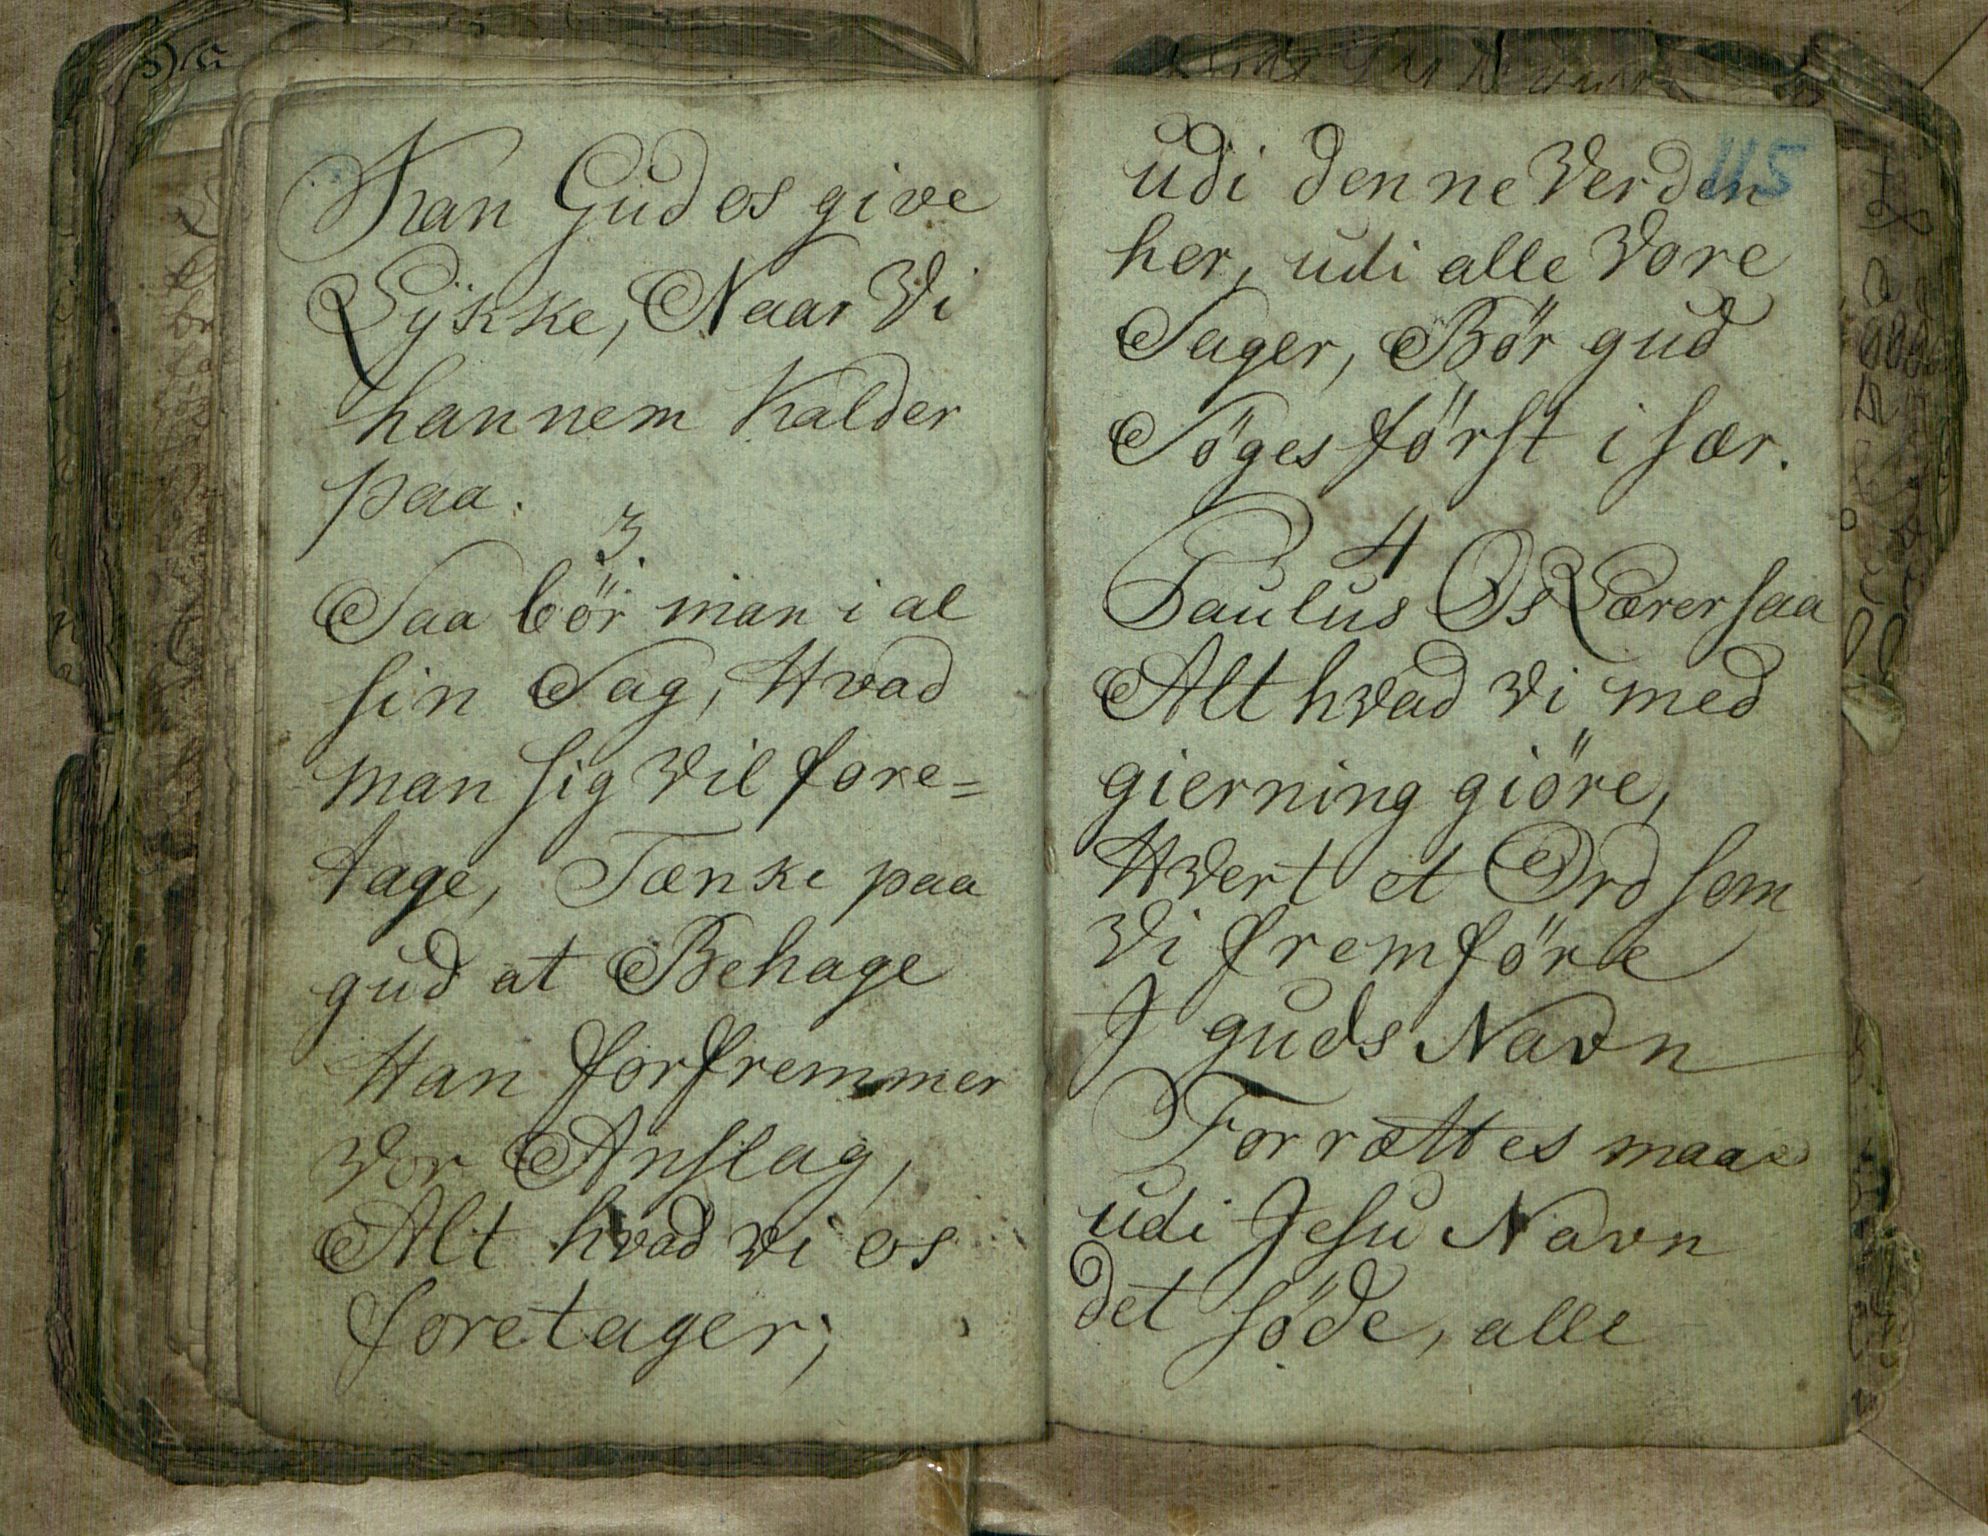 Kan Gud os give
Lÿkke, Naar Vi
hannem Kalder
paa.
3.
Saa bör man i al
sin Sag, Hvad
man sig Vil fore=
tage, Tænke paa
gud at Behage
Han forfremmer
Vor Anslag,
Alt hvad vi os
foretager;
115
udi denne Verden
her, udi alle Vore
Sager, Bör gud
Söges först i sær.
4
Paulus Os Lærer saa
Alt hvad Vi med
gierning giöre,
Hvert et Ord som
Vi fremföre
I guds Navn
Forrættes maae
udi Jesu Navn
det söde, alle